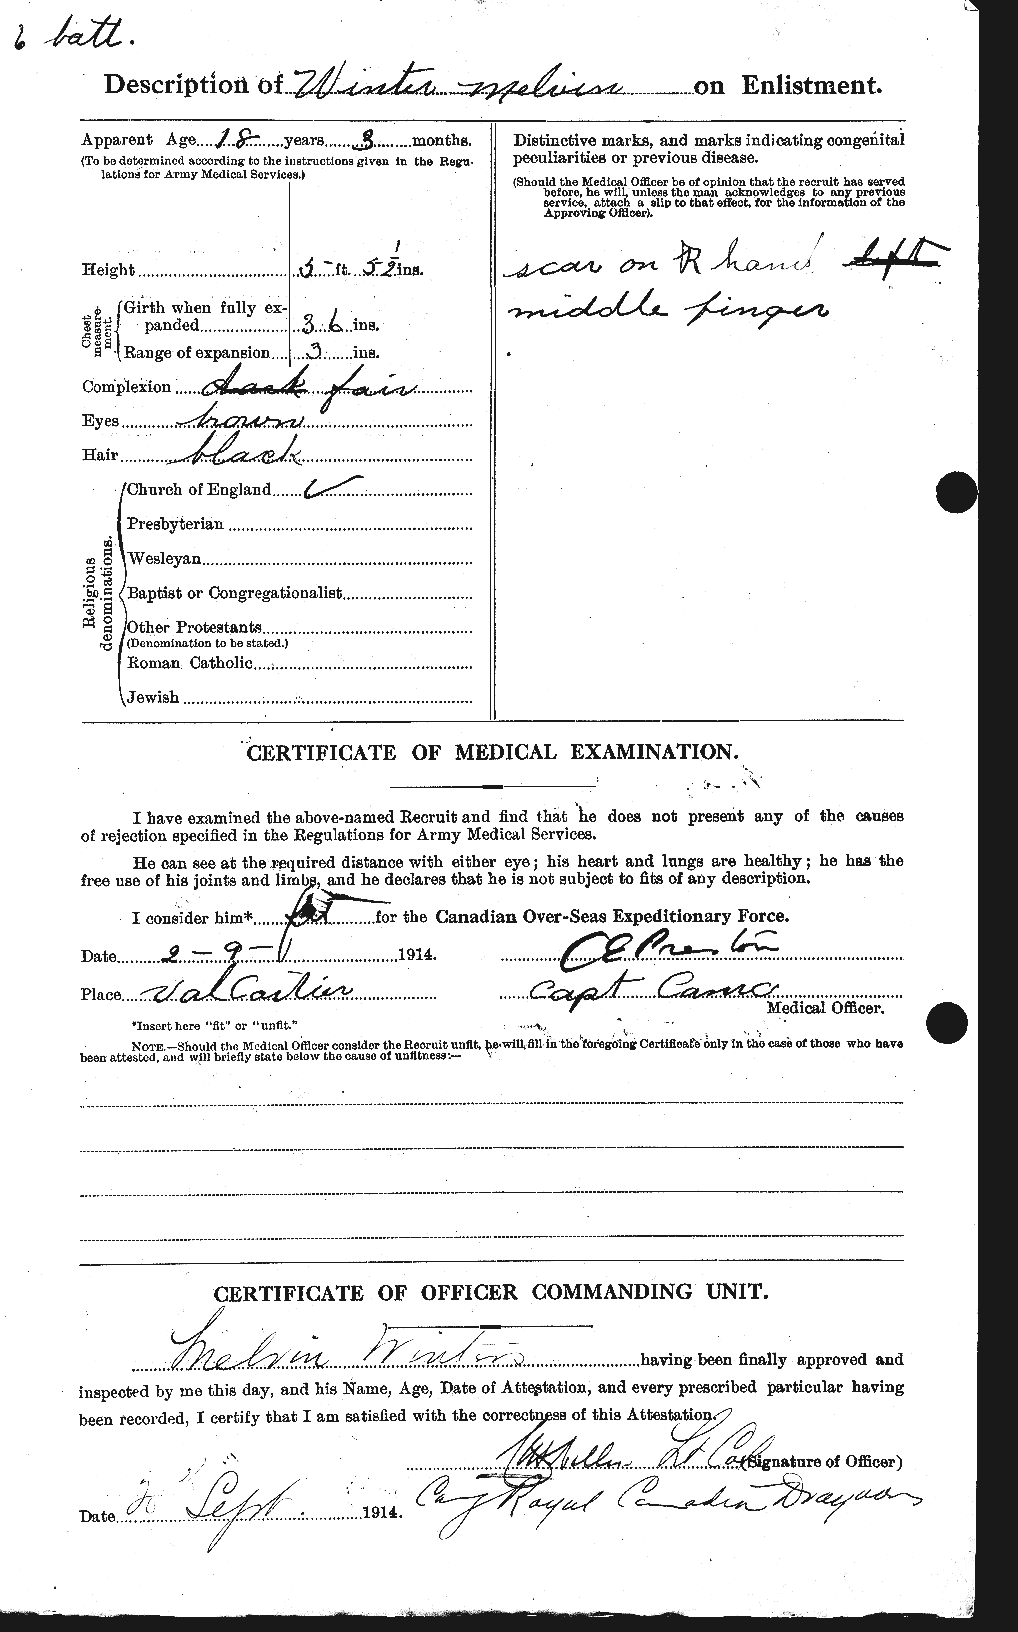 6 batt.
Description of Winter Melvin on Enlistment.
Apparent Age 18 years 3 months.
(To be determined according to the instructions given in the Regu-
lations for Army Medical Services.)
Height 5 ft. 5½ ins.
Chest measure-ment.
Girth when fully ex-
panded 36 ins.
Range of expansion 3 ins.
Complexion dark fair
Eyes brown
Hair black
Religious denominations.
Church of England ✓
Presbyterian
Wesleyan
Baptist or Congregationalist
Other Protestants
(Denomination to be stated.)
Roman Catholic
Jewish
Distinctive marks, and marks indicating congenital
peculiarities or previous disease.
(Should the Medical Officer be of opinion that the recruit has served
before, he will, unless the man acknowledges to any previous
service, attach a slip to that effect, for the information of the
Approving Officer).
scar on R hand left
middle finger
CERTIFICATE OF MEDICAL EXAMINATION.
I have examined the above-named Recruit and find that he does not present any of the causes
of rejection specified in the Regulations for Army Medical Services.
He can see at the required distance with either eye; his heart and lungs are healthy; he has the
free use of his joints and limbs, and he declares that he is not subject to fits of any description.
I consider him* fit for the Canadian Over-Seas Expeditionary Force.
Date 2-9- 1914. CE Preston
Place ValCartier Capt Camc
Medical Officer.
*Insert here "fit" or "unfit."
NOTE.—Should the Medical Officer consider the Recruit unfit, he will, fill in the foregoing Certificate only in the case of those who have
been attested, and will briefly state below the cause of unfitness:—
CERTIFICATE OF OFFICER COMMANDING UNIT.
Melvin Winters having been finally approved and
inspected by me this day, and his Name, Age, Date of Attestation, and every prescribed particular having
been recorded, I certify that I am satisfied with the correctness of this Attestation.
Lt Col (Signature of Officer)
Date Sept. 1914. Royal Canadian Dragoons